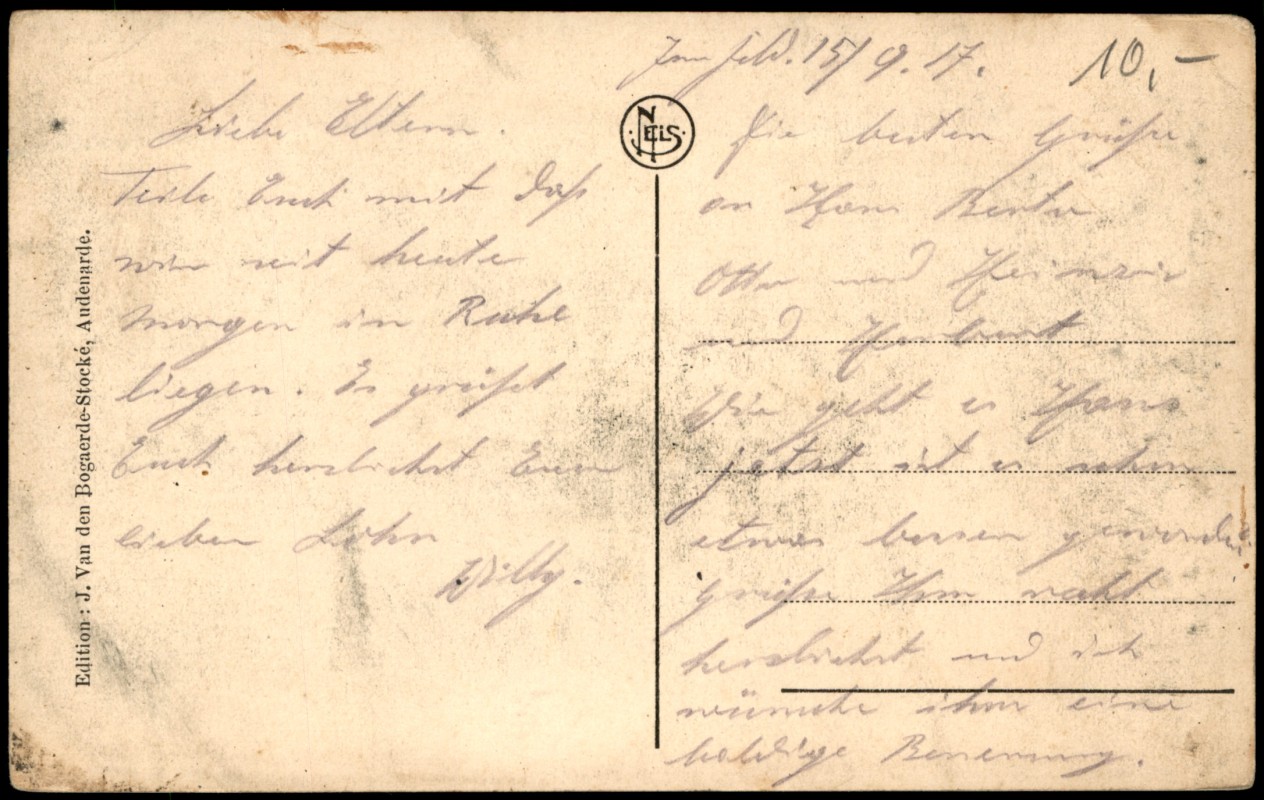 Im Feld. 15/9.17.
10,-
Liebe Eltern.
Teile Euch mit daß
wir seit heute
morgen in Ruhe
liegen. Es grüßt
Euch herzlichst Euer
lieber Sohn
Willy.
NELS
Die besten Grüße
an Hans Berta
Otto und Heinrich
und Herbert
Wie geht es Hans
jetzt ist es schon
etwas besser geworden
Grüße Ihm recht
herzlichst und ich
wünsche ihm eine
baldige Besserung.
Edition: J. Van den Bogaerde-Stocké, Audenarde.